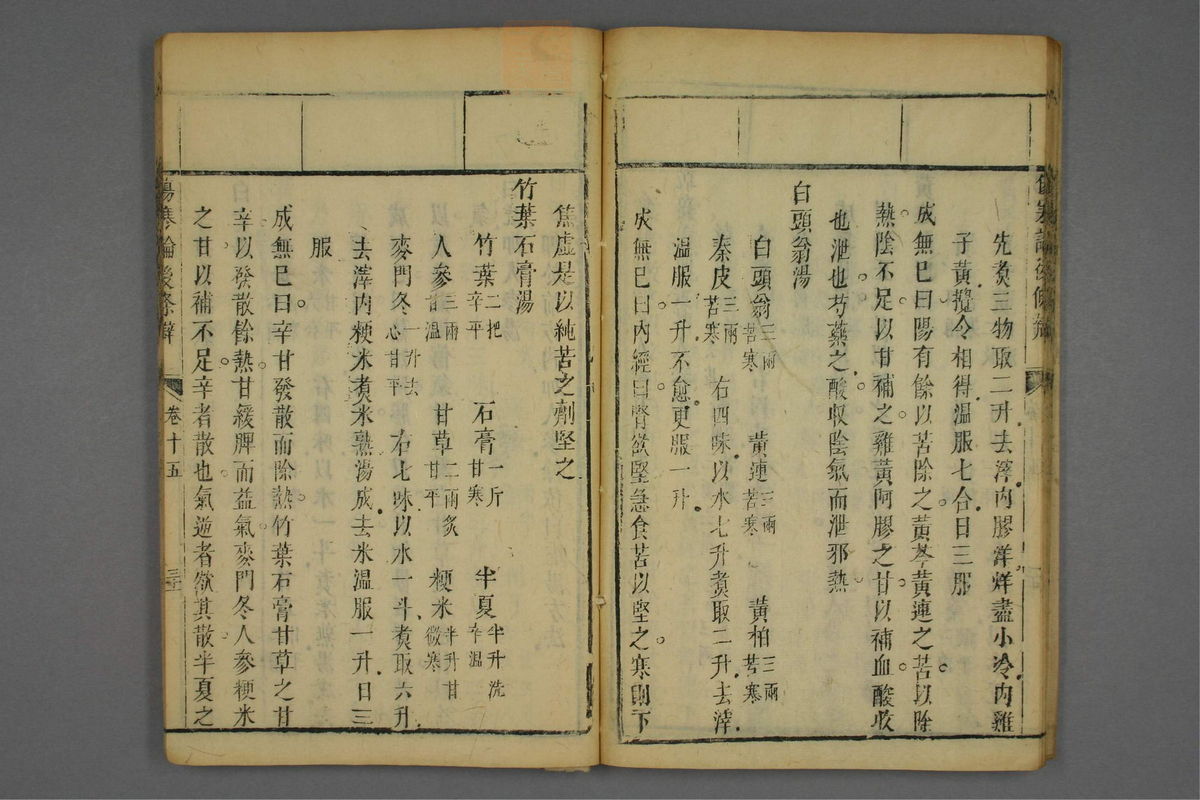 先煮三物取二升去滓內膠洋烊盡小冷內雞
子黃攪令相得溫服七合日三服
成無巳曰陽有餘以苦除之黃芩黃連之苦以除
熱陰不足以甘補之雞黃阿膠之甘以補血酸收
也泄也芍藥之酸收陰氣而泄邪熱
白頭翁湯
白頭翁三兩苦寒 黃連三兩苦寒 黃柏三兩苦寒
秦皮三兩苦寒 右四味以水七升煮取二升去滓
溫服一升不愈更服一升
成無巳曰內經曰腎欲堅急食苦以堅之寒則下
焦虛是以純苦之劑堅之
竹葉石膏湯
竹葉二把辛平 石膏一斤甘寒 半夏半升洗辛溫
人參三兩甘溫 甘草二兩炙甘平 粳米半升甘微寒
麥門冬一升去心甘平 右七味以水一斗煮取六升
去滓內粳米煮米熟湯成去米溫服一升日三
服
成無巳曰辛甘發散而除熱竹葉石膏甘草之甘
辛以發散餘熱甘緩脾而益氣麥門冬人參粳米
之甘以補不足辛者散也氣逆者欲其散半夏之
傷寒論後條辯 卷十五 三